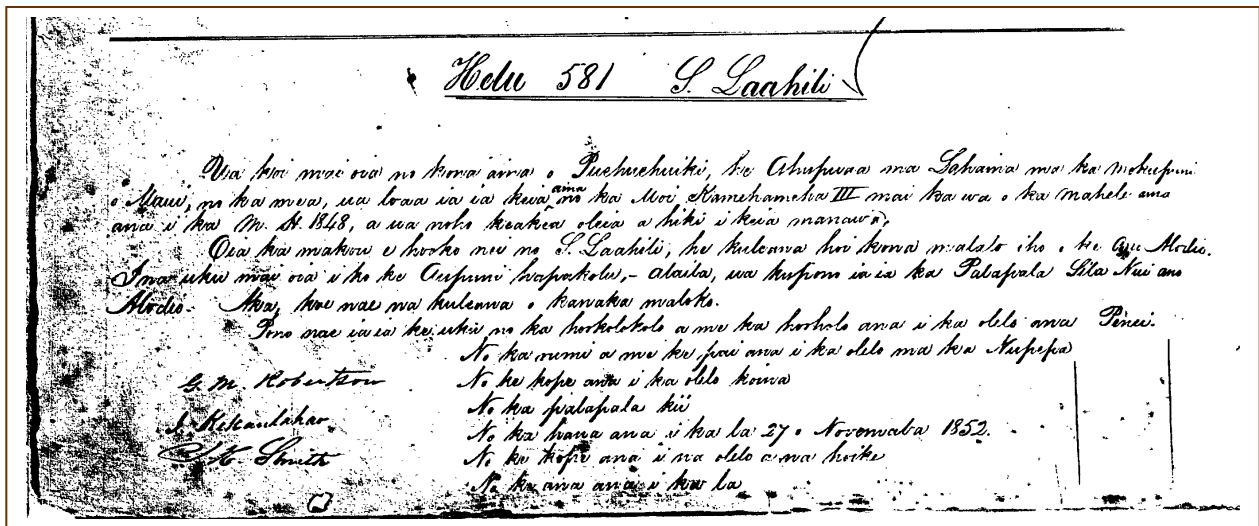 Helu 581 S. Laahili
Ua koi mai oia no kona aina o Puehuehuiki, he Ahupuaa ma Lahaina ma ka Mokupuni
o Maui, no ka mea, ua loaa ia ia keia aina no ka Moi Kamehameha III mai ka wa o ka mahele aina
ana i ka M. H. 1848, a ua noho keakea oleia a hiki i keia manawa;
Oia ka makou e hooko nei no S. Laahili, he kuleana hoi kona malalo iho o ke ano Alodio.
Ina uku mai oia i ko ke Aupuni hapakolu, - alaila, ua kupono ia ia ka Palapala Sila Nui ano
Alodio. Aka, koe nae na kuleana o kanaka maloko.
Pono nae iaia ke uku no ka hookolokolo a me ka hooholo ana i ka olelo ana Penei.
No ka rumi a me ke pai ana i ka olelo ma ka Nupepa
G. M. Robertson No ke kope ana i ka olelo koina
No ka palapala kii
J. Kekaulahao No ka hana ana i ka la 27 o Novemaba 1852.
Smith No ke kope ana i na olelo a na hoike
No ke ana ana i ka la